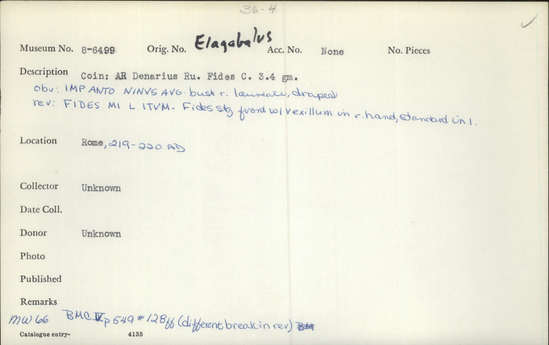 36-4 ✓
Museum No. 8-6499 Orig. No. Elagabalus Acc. No. None No. Pieces
Description Coin: AR Denarius Ru. Fides C. 3.4 gm.
obv: IMP ANTO NINVS AVG bust r. laureate, draped
rev: FIDES MI L ITVM. Fides stg frond w/ vexillum in r. hand, standard in l.
Location Rome, 219-220 AD
Collector Unknown
Date Coll.
Donor Unknown
Photo
Published
Remarks
MW 66 BMC V p 549 # 128 ff (different break in rev)
Catalogue entry- 4135